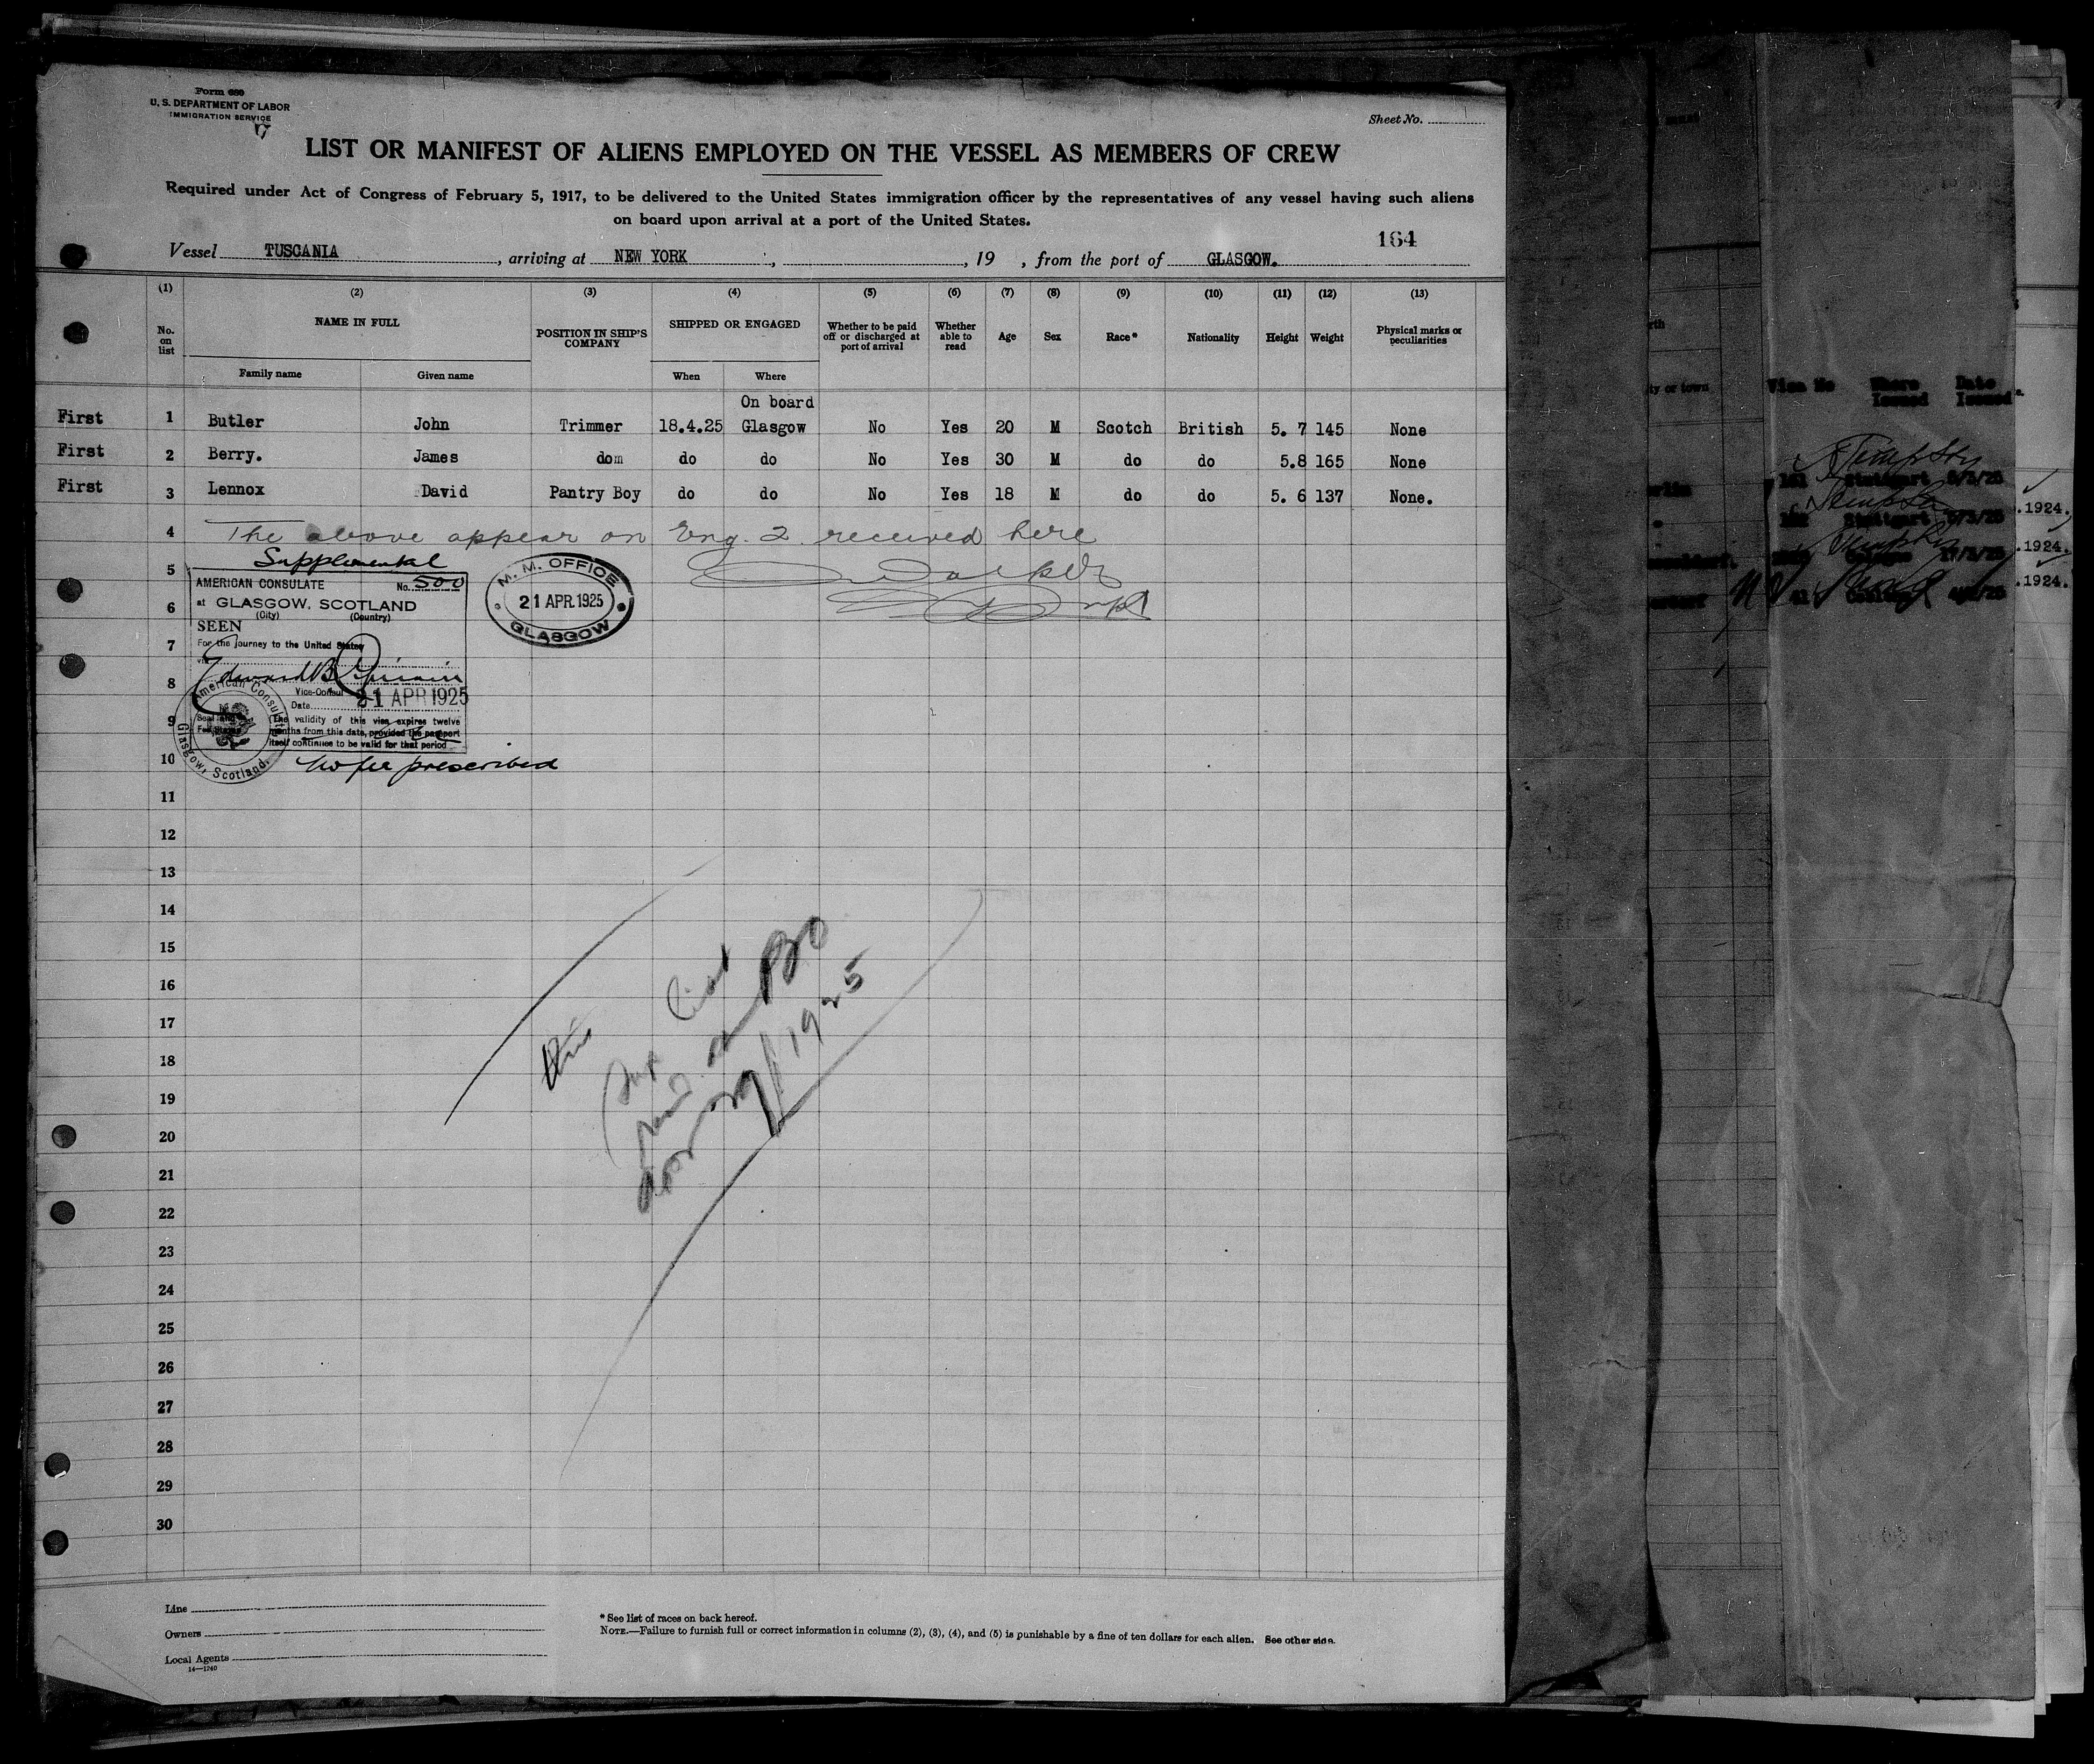 Form 680
U. S. DEPARTMENT OF LABOR
IMMIGRATION SERVICE
Sheet No.
LIST OR MANIFEST OF ALIENS EMPLOYED ON THE VESSEL AS MEMBERS OF CREW
Required under Act of Congress of February 5, 1917, to be delivered to the United States immigration officer by the representatives of any vessel having such aliens
on board upon arrival at a port of the United States.
164
Vessel TUSCANIA, arriving at NEW YORK, , 19 , from the port of GLASGOW.
(1) (2) (3) (4) (5) (6) (7) (8) (9) (10) (11) (12) (13)
No. on list NAME IN FULL POSITION IN SHIP'S COMPANY SHIPPED OR ENGAGED Whether to be paid off or discharged at port of arrival Whether able to read Age Sex Race* Nationality Height Weight Physical marks or peculiarities
Family name Given name When Where
On board
First 1 Butler John Trimmer 18.4.25 Glasgow No Yes 20 M Scotch British 5. 7 145 None
First 2 Berry. James dom do do No Yes 30 M do do 5.8 165 None
First 3 Lennox David Pantry Boy do do No Yes 18 M do do 5. 6 137 None.
4 The above appear on Eng. 2 received here
Supplemental
5
AMERICAN CONSULATE No. 500
at GLASGOW, SCOTLAND
(City) (Country)
SEEN
For the journey to the United States
Vice-Consul
Date 21 APR 1925
The validity of this visa expires twelve
months from this date, provided the passport
itself continues to be valid for that period
American Consulate
Glasgow, Scotland.
No fee prescribed
M. M. OFFICE
21 APR 1925
GLASGOW
6
7
8
9
10
11
12
13
14
15
16
17
18
19
20
21
22
23
24
25
26
27
28
29
30
this
list
1925
Line
Owners
Local Agents
14—1240
* See list of races on back hereof.
NOTE.—Failure to furnish full or correct information in columns (2), (3), (4), and (5) is punishable by a fine of ten dollars for each alien. See other side.
ty or town
Visa No Where Issued Date Issued
Stuttgart
1924.
1924.
1924.